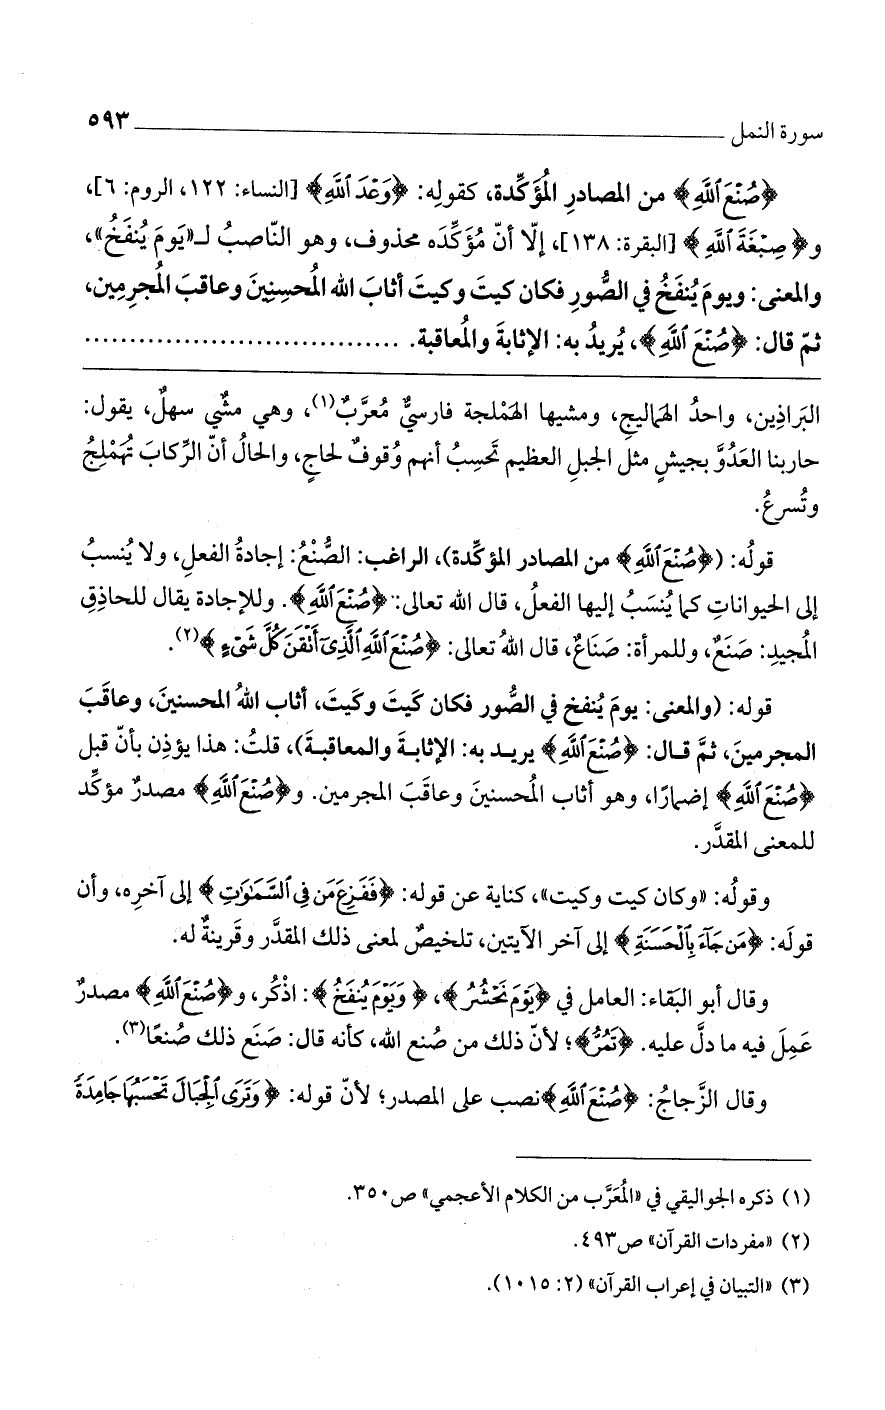 سورة النمل ٥٩٣
﴿صُنْعَ ٱللَّهِ﴾ من المصادرِ المُؤَكِّدة، كقولِه: ﴿وَعْدَ ٱللَّهِ﴾ [النساء: ١٢٢، الروم: ٦]،
و﴿صِبْغَةَ ٱللَّهِ﴾ [البقرة: ١٣٨]، إلّا أنّ مُؤَكِّدَه محذوف، وهو النّاصبُ لـ«يَومَ يُنفَخُ»،
والمعنى: ويومَ يُنفَخُ في الصُّورِ فكان كيتَ وكيتَ أثابَ الله المُحسِنِينَ وعاقبَ المُجرِمين،
ثمّ قال: ﴿صُنْعَ ٱللَّهِ﴾، يُريدُ به: الإثابةَ والمُعاقبة. ..................................
البَراذِين، واحدُ الهماليجِ، ومشيها الهَمْلجة فارسيٌّ مُعرَّبٌ(١)، وهي مشْي سهلٌ، يقول:
حاربنا العَدُوَّ بجيشٍ مثل الجبلِ العظيم تَحسِبُ أنهم وُقوفٌ لحاجٍ، والحالُ أنّ الرِّكابَ تُهَمْلِجُ
وتُسرعُ.
قولُه: (﴿صُنْعَ ٱللَّهِ﴾ من المصادر المؤكِّدة)، الراغب: الصُّنْعُ: إجادةُ الفعلِ، ولا يُنسبُ
إلى الحيواناتِ كما يُنسَبُ إليها الفعلُ، قال الله تعالى: ﴿صُنْعَ ٱللَّهِ﴾. وللإجادة يقال للحاذِقِ
المُجيدِ: صَنَعٌ، وللمرأة: صنَاعٌ، قال اللهُ تعالى: ﴿صُنْعَ ٱللَّهِ ٱلَّذِىٓ أَتْقَنَ كُلَّ شَىْءٍ﴾(٢).
قوله: (والمعنى: يومَ يُنفخ في الصُّور فكان كَيتَ وكَيتَ، أثاب اللهُ المحسنينَ، وعاقَبَ
المجرمينَ، ثمَّ قـال: ﴿صُنْعَ ٱللَّهِ﴾ يريـد به: الإثابـةَ والمعاقبـةَ)، قلتُ: هذا يؤذِن بأنّ قبل
﴿صُنْعَ ٱللَّهِ﴾ إضمارًا، وهو أثاب المُحسنينَ وعاقَبَ المجرمين. و﴿صُنْعَ ٱللَّهِ﴾ مصدرٌ مؤكِّد
للمعنى المقدَّر.
وقولُه: «وكان كيت وكيت»، كناية عن قوله: ﴿فَفَزِعَ مَن فِى ٱلسَّمَٰوَٰتِ﴾ إلى آخرِه، وأن
قولَه: ﴿مَن جَآءَ بِٱلْحَسَنَةِ﴾ إلى آخر الآيتين، تلخيصٌ لمعنى ذلك المقدَّر وقَرينةٌ له.
وقال أبو البَقاء: العامل في ﴿يَوْمَ نَحْشُرُ﴾، ﴿وَيَوْمَ يُنفَخُ﴾: اذْكُر، و﴿صُنْعَ ٱللَّهِ﴾ مصدرٌ
عَمِلَ فيه ما دلَّ عليه. ﴿تَمُرُّ﴾؛ لأنّ ذلك من صُنع الله، كأنه قال: صَنَع ذلك صُنعًا(٣).
وقال الزَّجاجُ: ﴿صُنْعَ ٱللَّهِ﴾ نصب على المصدر؛ لأنّ قوله: ﴿وَتَرَى ٱلْجِبَالَ تَحْسَبُهَا جَامِدَةً
(١) ذكره الجواليقي في «المُعَرَّب من الكلام الأعجمي» ص٣٥٠.
(٢) «مفردات القرآن» ص٤٩٣.
(٣) «التبيان في إعراب القرآن» (٢: ١٠١٥).